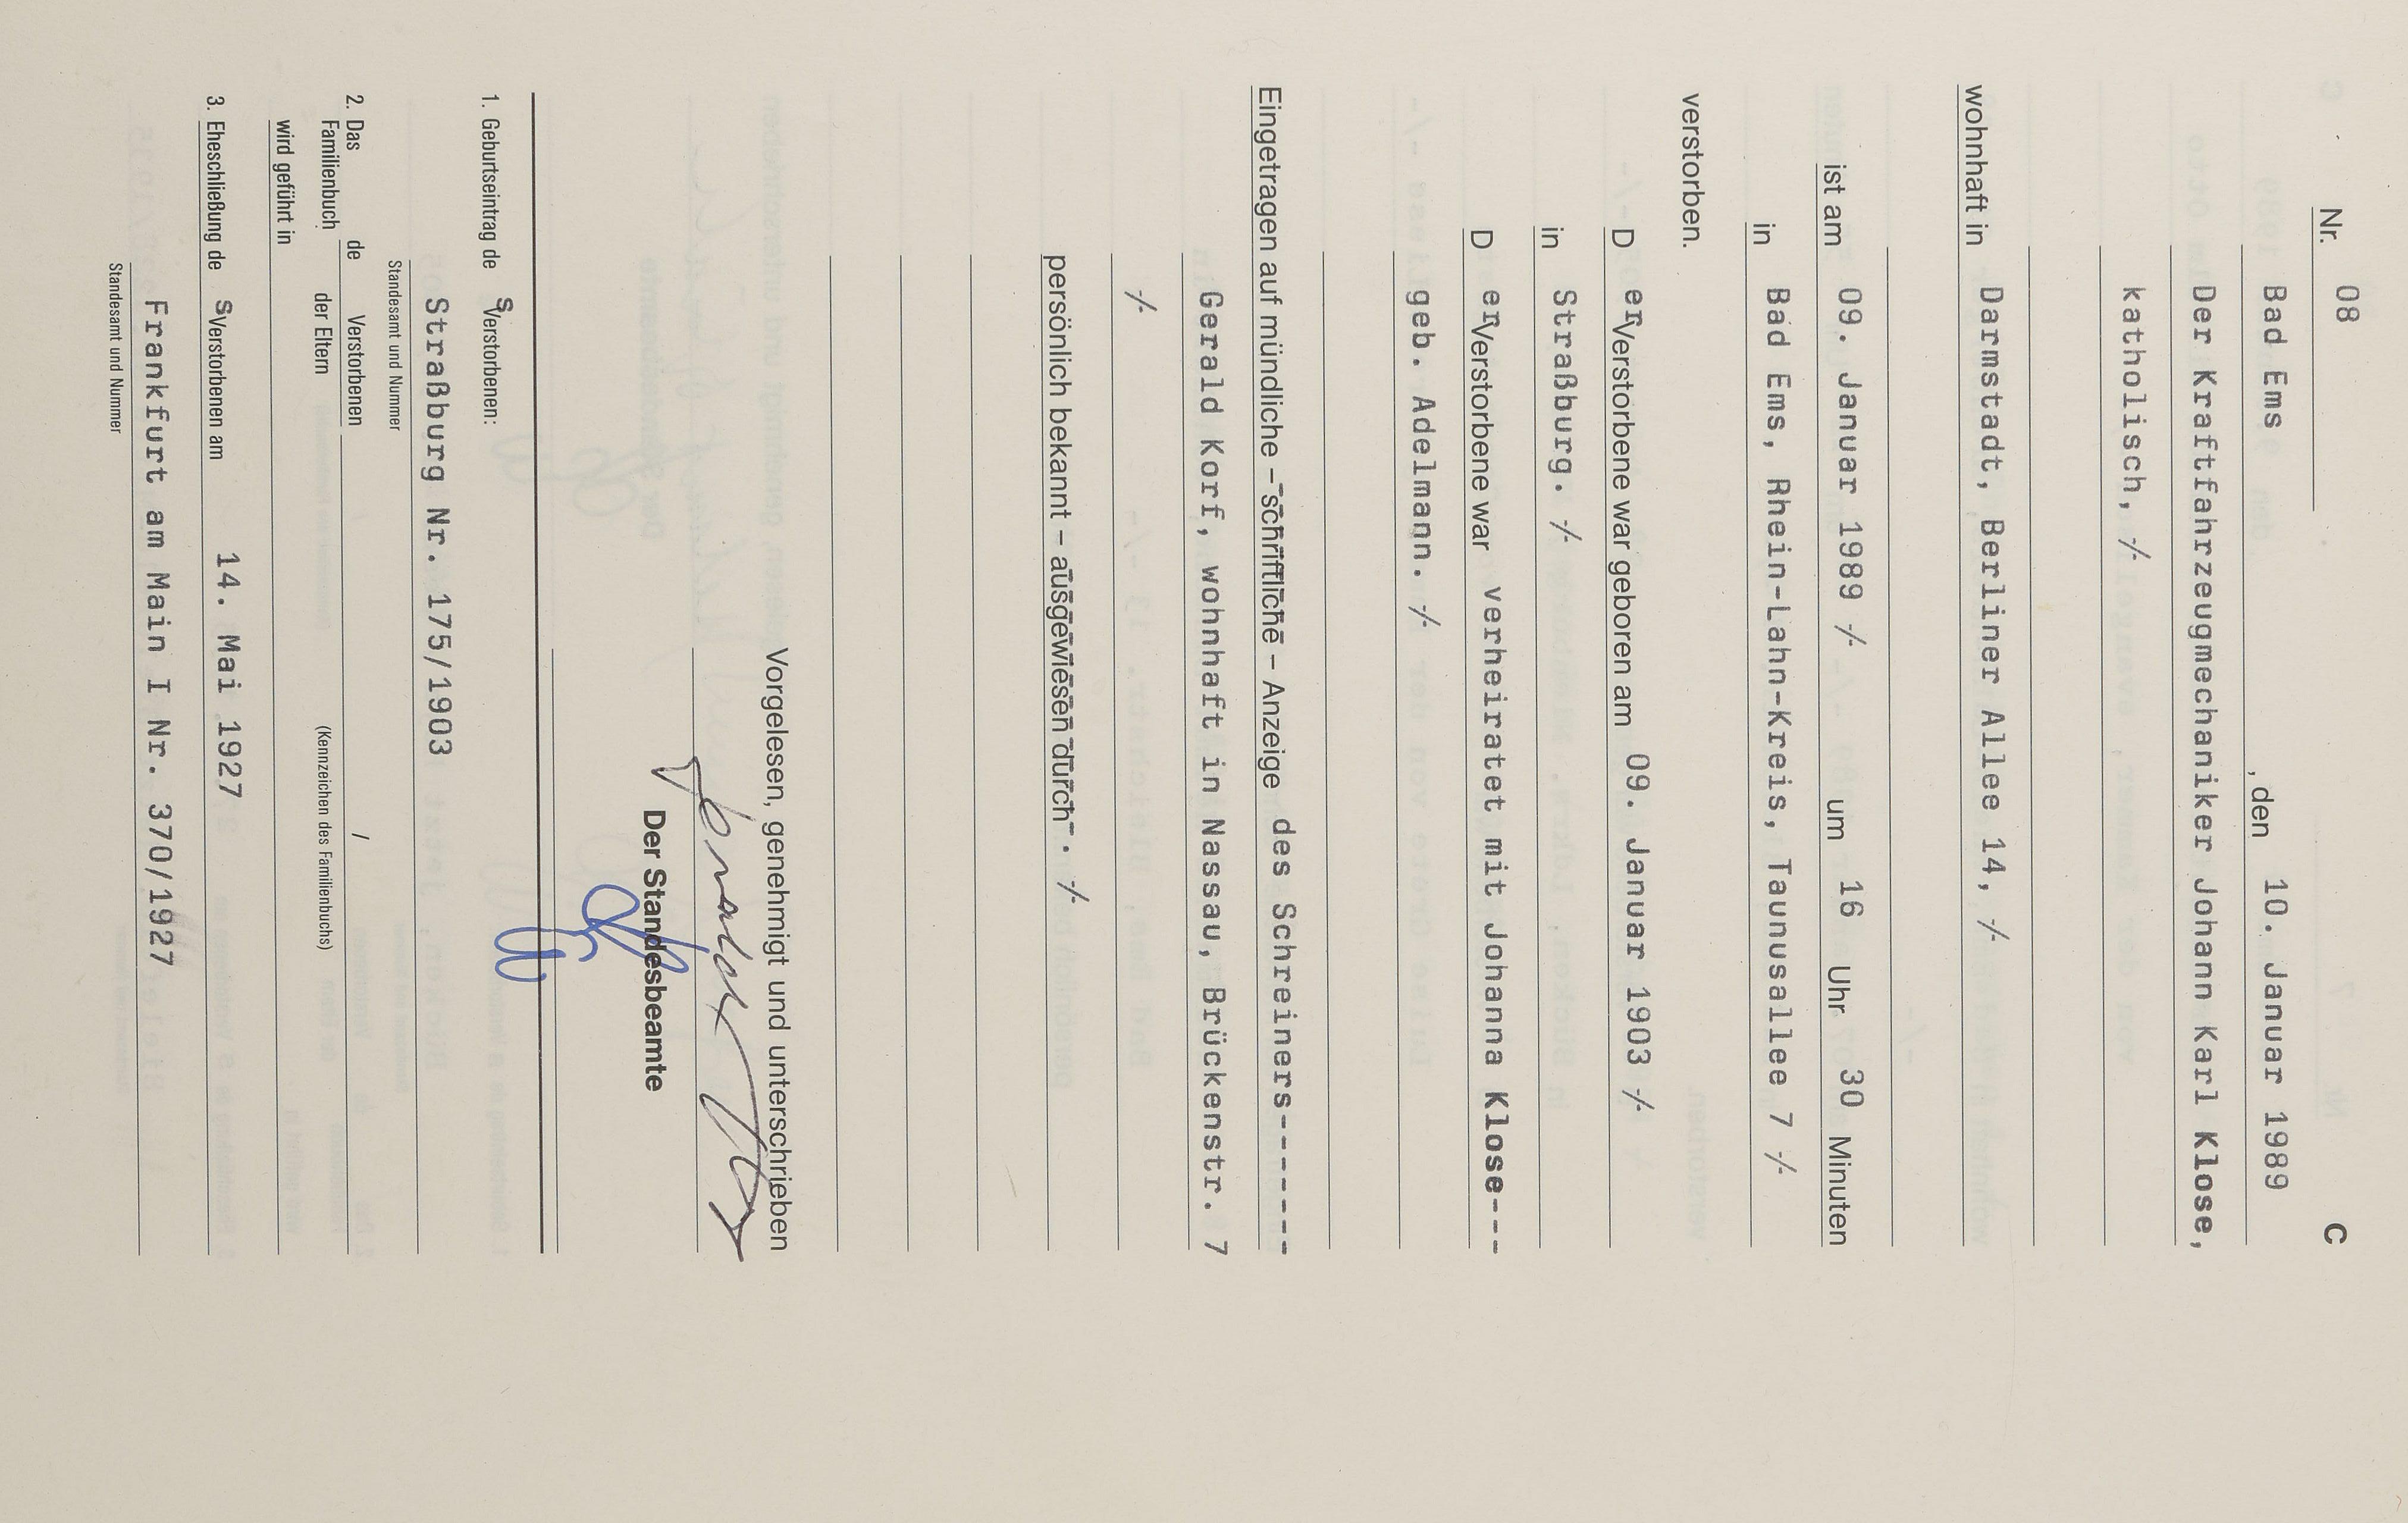 C
Nr. 08
Bad Ems, den 10. Januar 1989
Der Kraftfahrzeugmechaniker Johann Karl Klose,
katholisch, -/-
wohnhaft in Darmstadt, Berliner Allee 14, -/-
ist am 09. Januar 1989 -/- um 16 Uhr 30 Minuten
in Bad Ems, Rhein-Lahn-Kreis, Taunusallee 7 -/-
verstorben.
D er Verstorbene war geboren am 09. Januar 1903 -/-
in Straßburg. -/-
D er Verstorbene war verheiratet mit Johanna Klose---
geb. Adelmann. -/-
Eingetragen auf mündliche – schriftliche – Anzeige des Schreiners-------
Gerald Korf, wohnhaft in Nassau, Brückenstr. 7
-/-
persönlich bekannt – ausgewiesen durch . -/-
Vorgelesen, genehmigt und unterschrieben
Der Standesbeamte
1. Geburtseintrag de s Verstorbenen:
Straßburg Nr. 175/1903
Standesamt und Nummer
2. Das Familienbuch de Verstorbenen /
der Eltern (Kennzeichen des Familienbuchs)
wird geführt in
3. Eheschließung de s Verstorbenen am 14. Mai 1927
Frankfurt am Main I Nr. 370/1927
Standesamt und Nummer